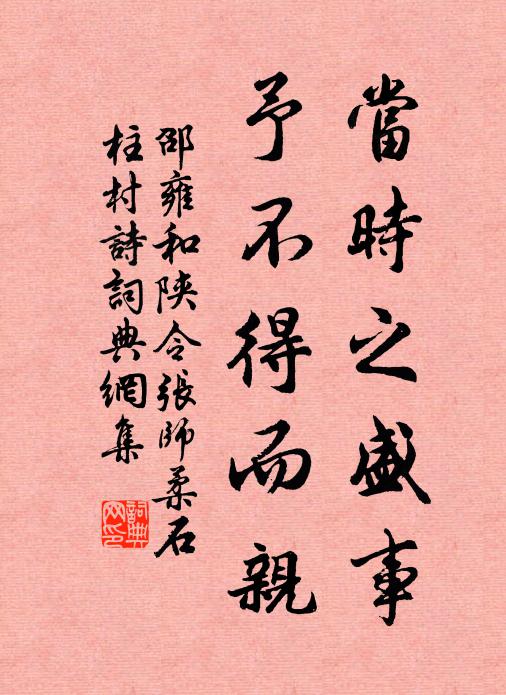 當時之盛事
予不得而親
邵雍和陝令張師柔石
柱村詩詞典網集
詞典
网印